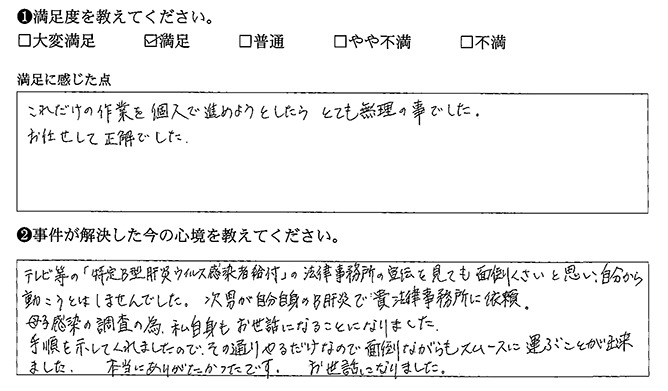 ❶満足度を教えてください。
□大変満足 ☑満足 □普通 □やや不満 □不満
満足に感じた点
これだけの作業を個人で進めようとしたら とても無理の事でした。
お任せして正解でした.
❷事件が解決した今の心境を教えてください。
テレビ等の「特定B型肝炎ウイルス感染者給付」の法律事務所の宣伝を見ても面倒くさいと思い、自分から
動こうとはしませんでした。次男が自分自身のB肝炎で貴法律事務所に依頼。
母子感染の調査の為、私自身もお世話になることになりました.
手順を示してくれましたので、その通りやるだけなので面倒ながらもスムースに運ぶことが出来
ました. 本当にありがたかったです。 お世話になりました。